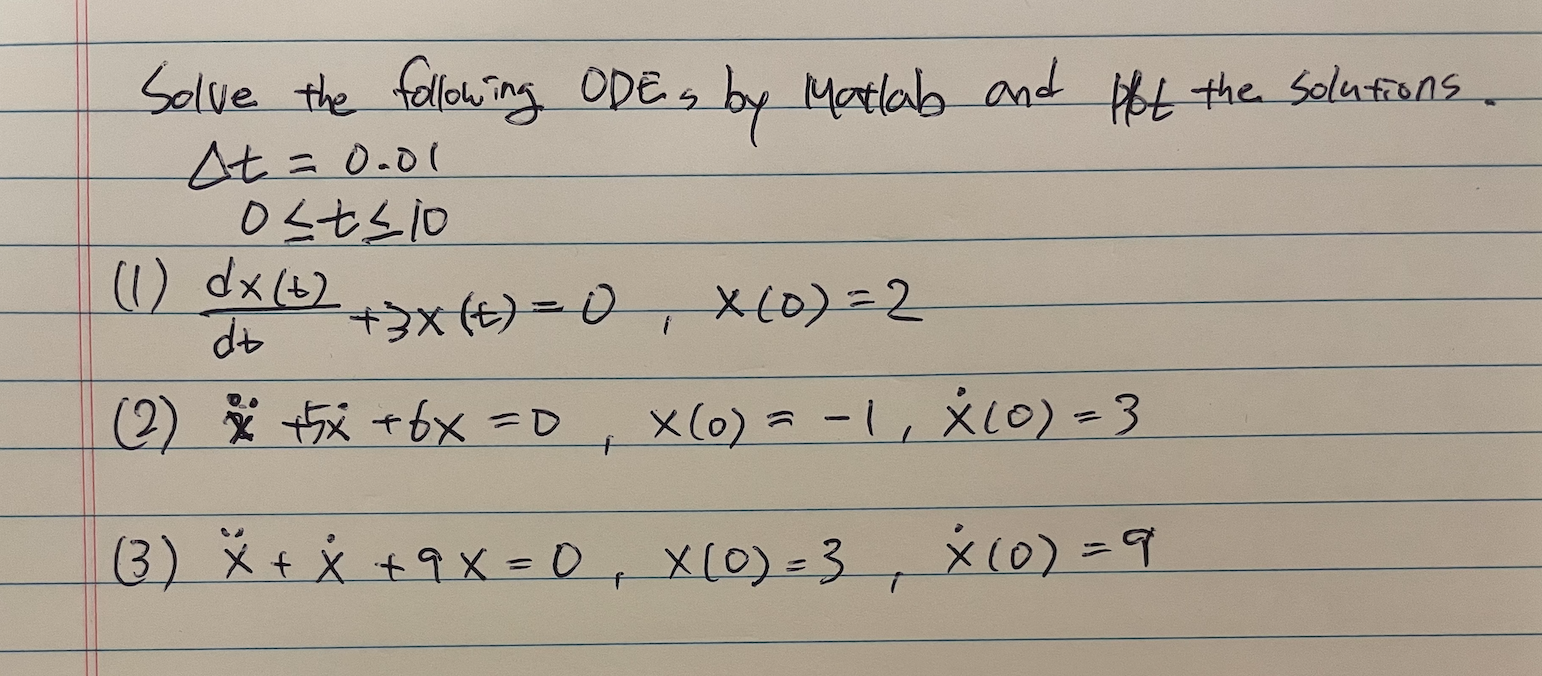 Solve the following ODEs by Matlab and plot the solutions.
Δt = 0.01
0 ≤ t ≤ 10
(1) dx(t)/dt + 3x(t) = 0, x(0) = 2
(2) ẍ + 5ẋ + 6x = 0, x(0) = -1, ẋ(0) = 3
(3) ẍ + ẋ + 9x = 0, x(0) = 3, ẋ(0) = 9